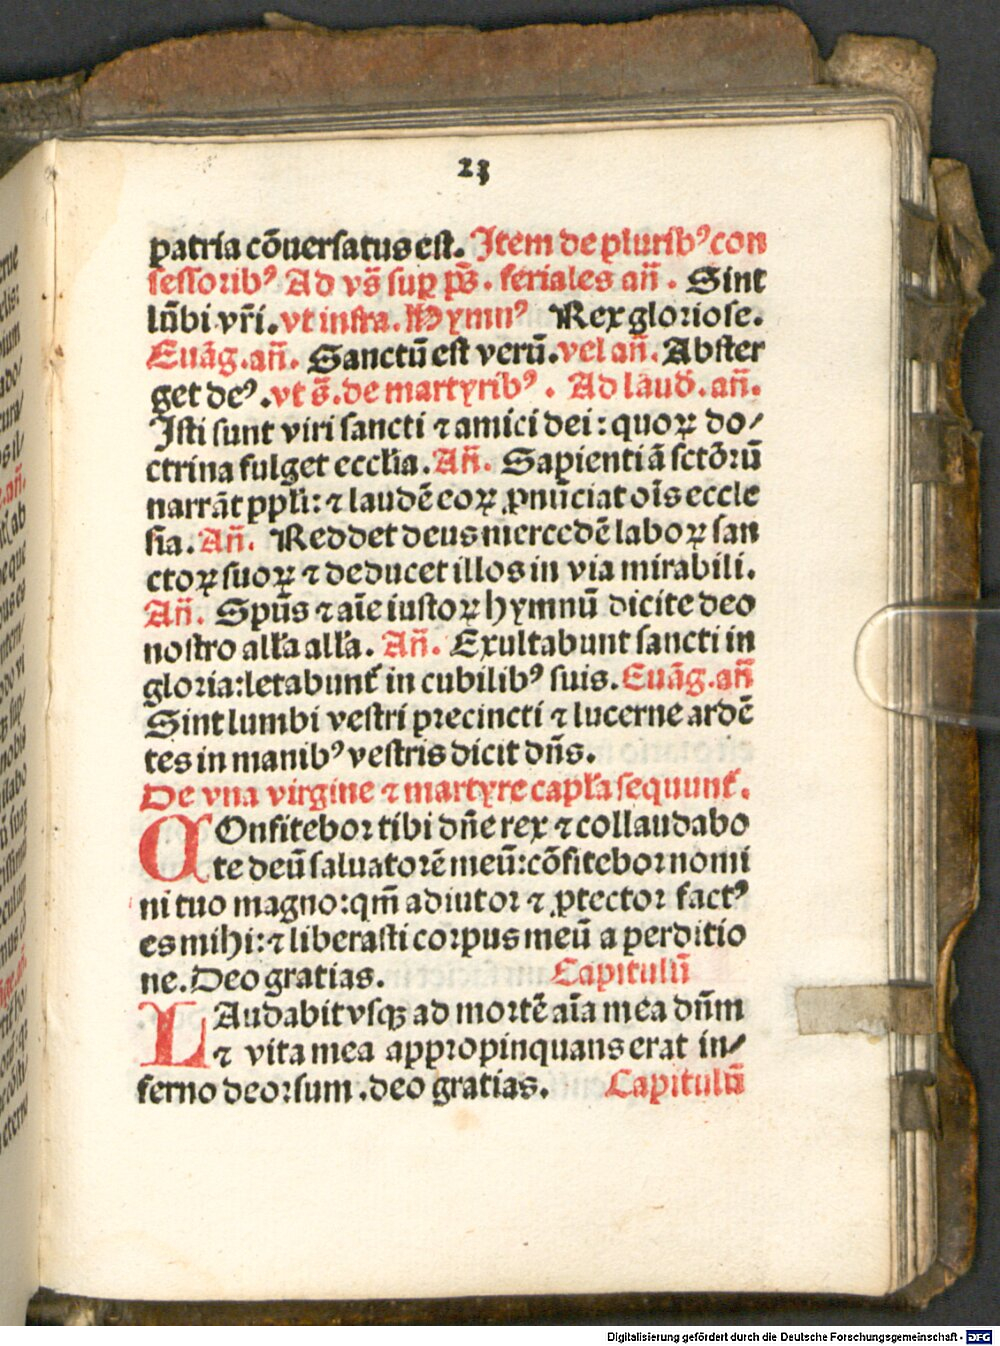 23
patria cōuersatus est. Item de plurib⁹ con
fessorib⁹ Ad vs̄ suꝑ ps̄. feriales añ. Sint
lūbi vr̄i. vt infra. Hymn⁹ Rex gloriose.
Euāg. añ. Sanctū est verū. vel añ. Abster
get de⁹. vt s̄. de martyrib⁹. Ad laud̄. añ.
Isti sunt viri sancti ⁊ amici dei: quoꝝ do⸗
ctrina fulget ecclīa. Añ. Sapientiā sctōrū
narrāt ppl̄i: ⁊ laudē eoꝝ ꝓnūciat oīs eccle
sia. Añ. Reddet deus mercedē laboꝝ san
ctoꝝ suoꝝ ⁊ deducet illos in via mirabili.
Añ. Spūs ⁊ aīe iustoꝝ hymnū dicite deo
nostro all'a all'a. Añ. Exultabunt sancti in
gloria: letabunt̄ in cubilib⁹ suis. Euāg. añ
Sint lumbi vestri precincti ⁊ lucerne ardē
tes in manib⁹ vestris dicit dn̄s.
De vna virgine ⁊ martyre capl'a sequunt̄.
COnfitebor tibi dn̄e rex ⁊ collaudabo
te deū saluatorē meū: cōfitebor nomi
ni tuo magno: qm̄ adiutor ⁊ ꝓtector fact⁹
es mihi: ⁊ liberasti corpus meū a perditio
ne. Deo gratias. Capitulū
LAudabit vsqꝫ ad mortē aīa mea dn̄m
⁊ vita mea appropinquans erat in⸗
ferno deorsum. deo gratias. Capitulū
Digitalisierung gefördert durch die Deutsche Forschungsgemeinschaft - DFG